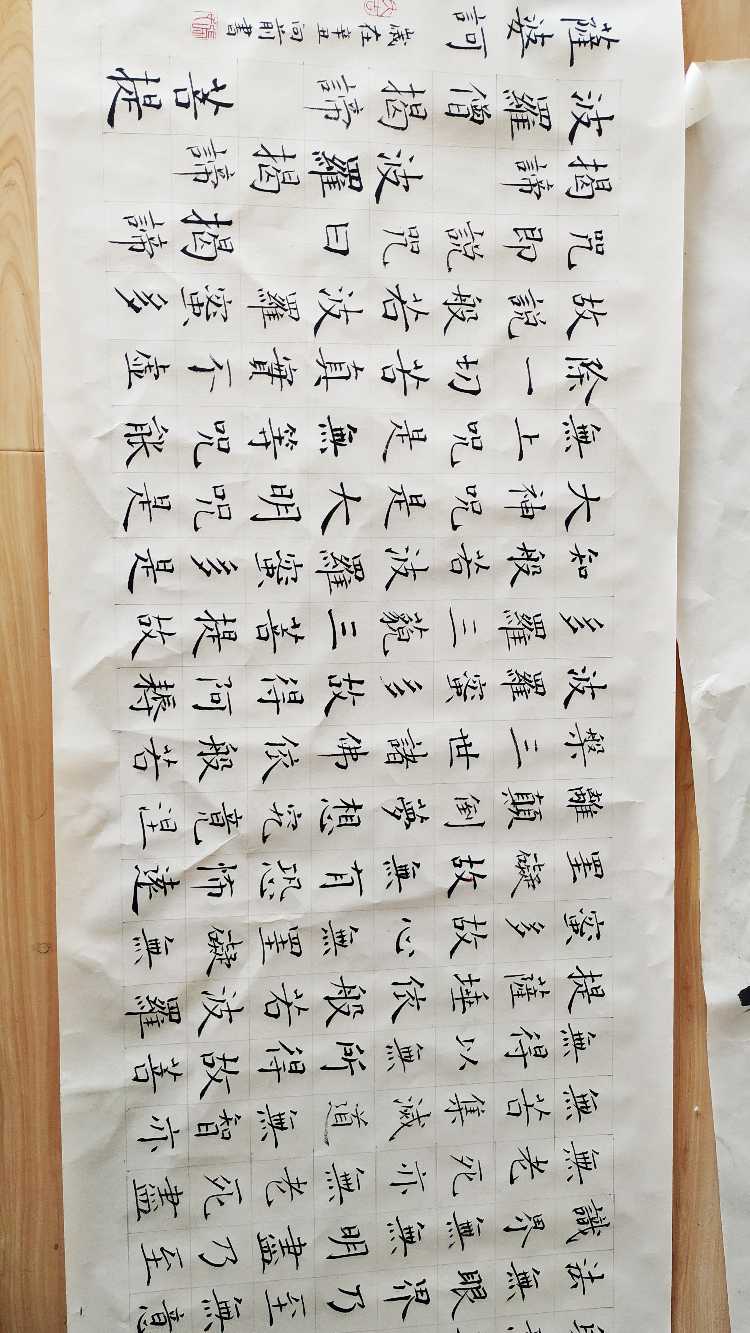 法無眼界乃至無意
識界無無明盡乃至
無老死亦無老死盡
無苦集滅道無智亦
無得以無所得故菩
提薩埵依般若波羅
蜜多故心無罣礙無
罣礙故無有恐怖遠
離顛倒夢想究竟涅
槃三世諸佛依般若
波羅蜜多故得阿耨
多羅三藐三菩提故
知般若波羅蜜多是
大神咒是大明咒是
無上咒是無等咒能
除一切苦真實不虛
故說般若波羅蜜多
咒即說咒曰 揭諦
揭諦 波羅揭諦
波羅僧揭諦 菩提
薩婆訶
歲在辛丑向前書